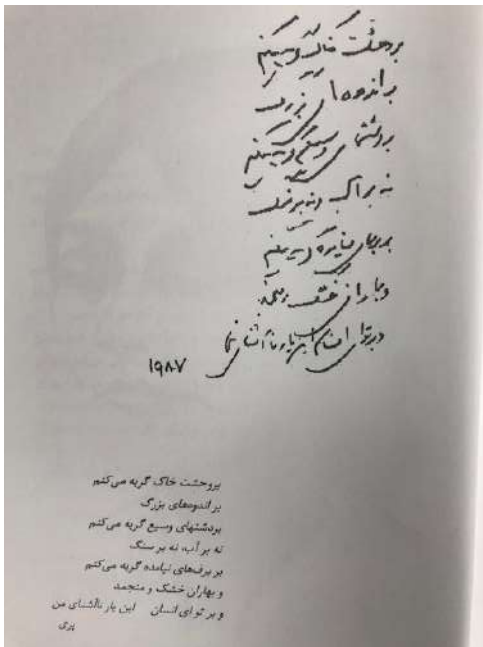 بر وحشت خاک گریه میکنم
بر اندوه‌های بزرگ
بر دشتهای وسیع گریه میکنم
نه بر آب و نه بر سنگ
بر برفهای نیامده گریه میکنم
و بهاران خشک و منجمد
و بر تو ای انسان این یار ناآشنای من
۱۹۸۷
بروحشت خاک گریه می‌کنم
بر اندوه‌های بزرگ
بردشتهای وسیع گریه می‌کنم
نه بر آب، نه بر سنگ
بر برف‌های نیامده گریه می‌کنم
و بهاران خشک و منجمد
و بر تو ای انسان این یار ناآشنای من
پری